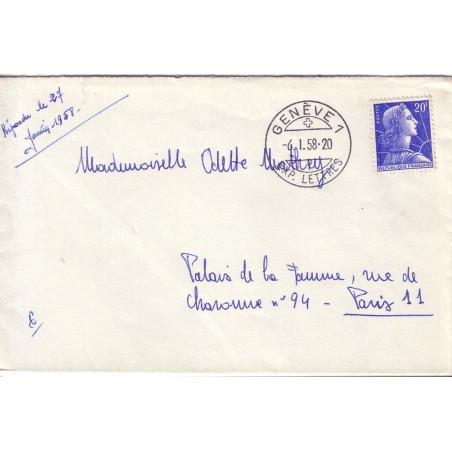 Répondu le 27
Janvier 1958.
GENÈVE 1
-6. I. 58-20
EXP. LETTRES
20F
REPUBLIQUE FRANÇAISE
Mademoiselle Odette Mathey
Palais de la Femme, rue de
Charonne n° 94 - Paris 11